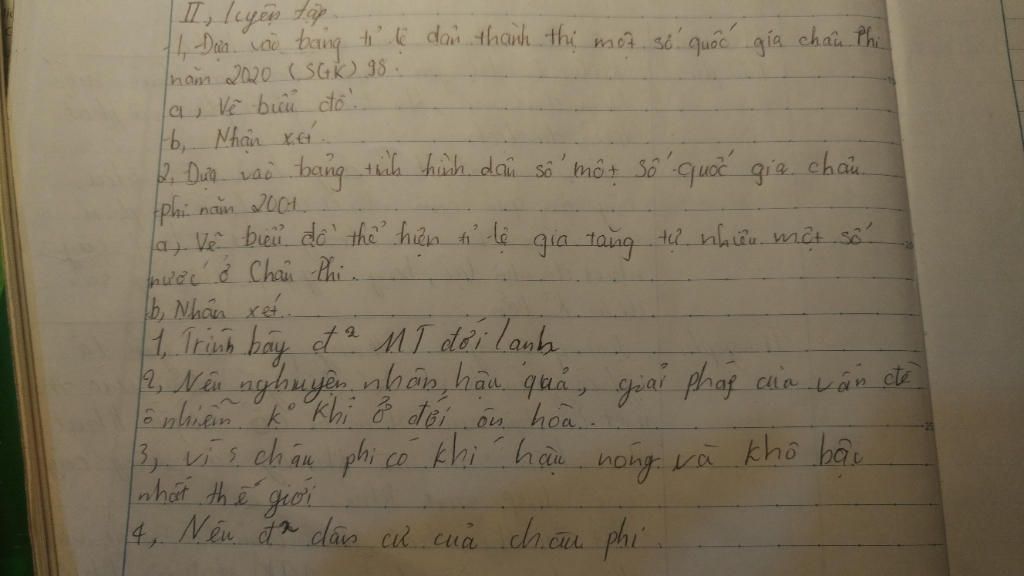 II, luyện tập.
1, Dựa vào bảng tỉ lệ dân thành thị một số quốc gia châu Phi
năm 2020 (SGK) 98.
a, Vẽ biểu đồ.
b, Nhận xét.
2, Dựa vào bảng tình hình dân số một số quốc gia châu
phi năm 2001
a, Vẽ biểu đồ thể hiện tỉ lệ gia tăng tự nhiên một số
nước ở Châu Phi.
b, Nhận xét.
1, Trình bày đ² MT đới lạnh
2, Nêu nghuyên nhân, hậu quả, giải pháp của vấn đề
ô nhiễm k° khí ở đới ôn hòa.
3, vì s châu phi có khí hậu nóng và khô bậc
nhất thế giới
4, Nêu đ² dân cư của châu phi.